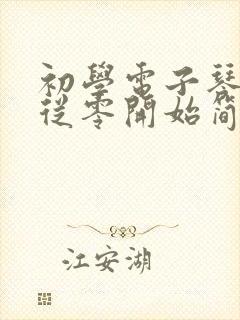 初學電子琴
從零開始簡
江安湖